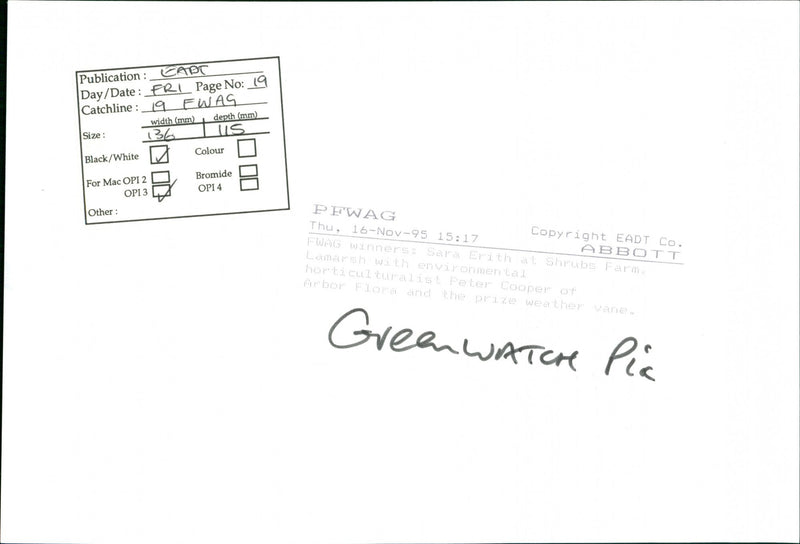 Publication : EADT
Day/Date : FRI Page No: 19
Catchline : 19 FWAG
width (mm) depth (mm)
Size : 136 115
Black/White Colour
For Mac OPI 2 Bromide
OPI 3 OPI 4
Other :
PFWAG
Thu, 16-Nov-95 15:17 Copyright EADT Co.
ABBOTT
FWAG winners: Sara Erith at Shrubs Farm,
Lamarsh with environmental
horticulturalist Peter Cooper of
Arbor Flora and the prize weather vane.
GreenWATCH Pic